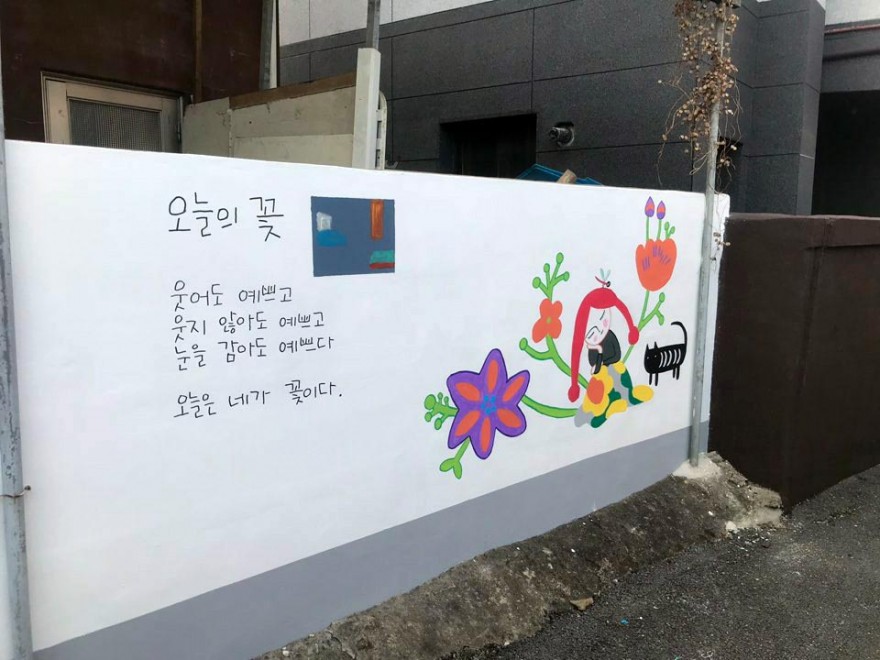 오늘의 꽃
웃어도 예쁘고
웃지 않아도 예쁘고
눈을 감아도 예쁘다
오늘은 네가 꽃이다.